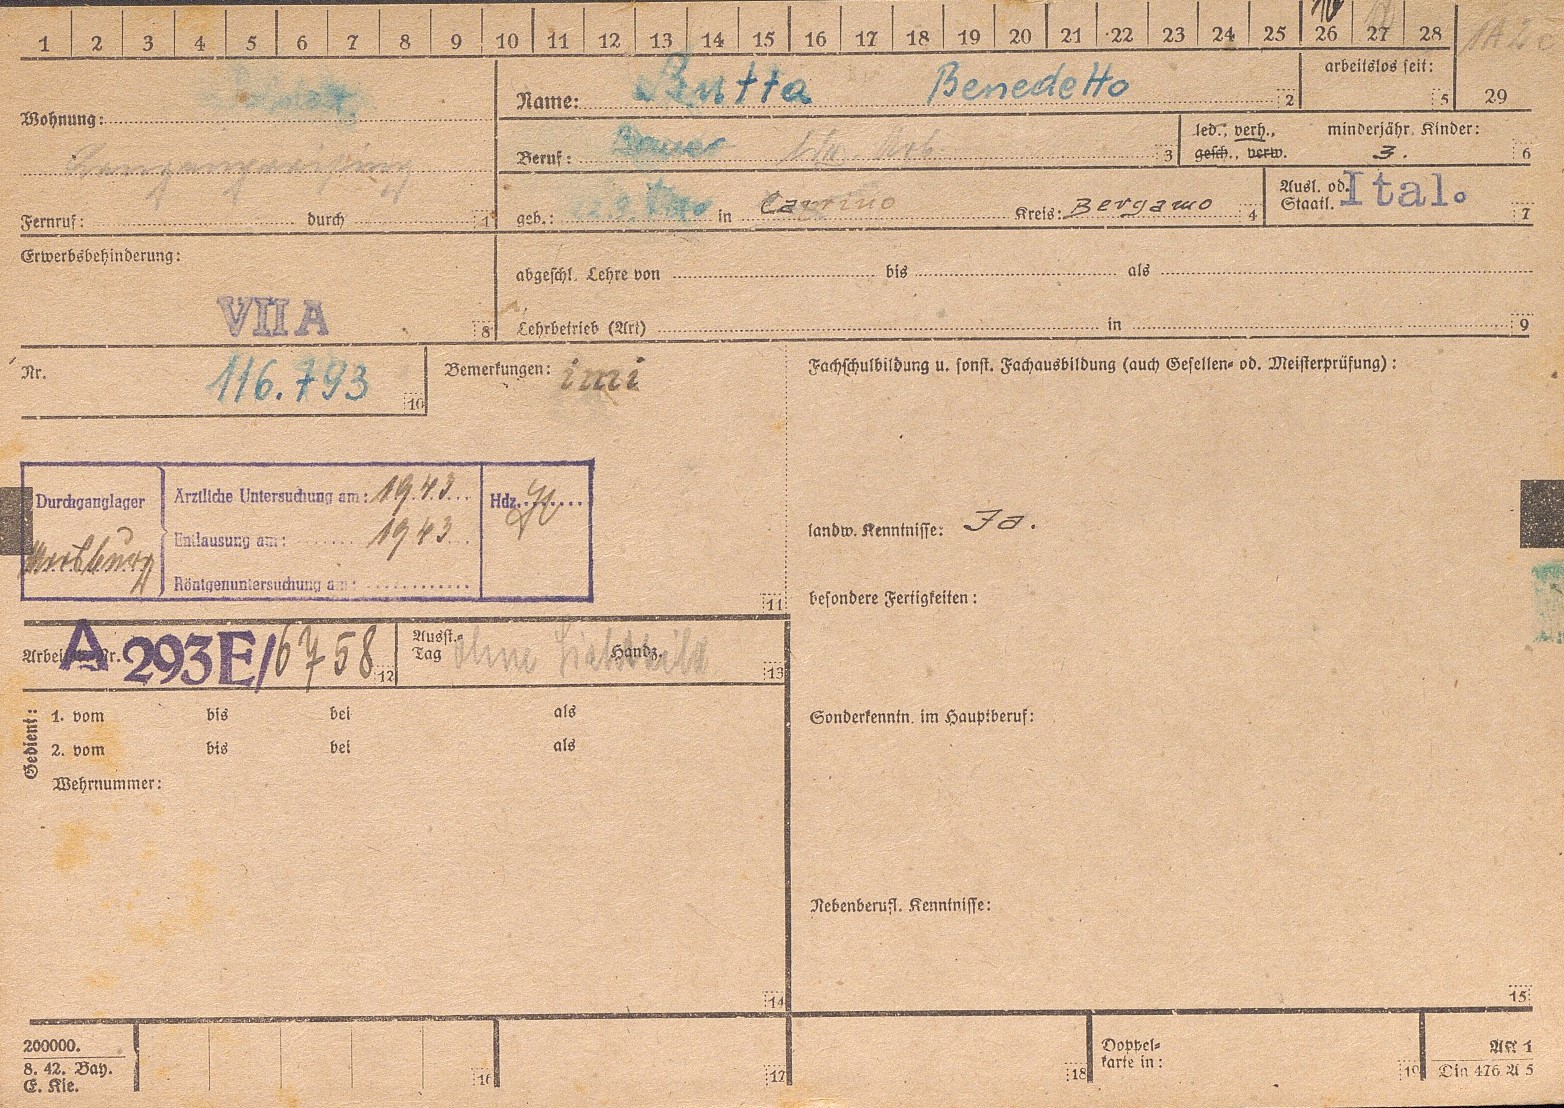 1 2 3 4 5 6 7 8 9 10 11 12 13 14 15 16 17 18 19 20 21 22 23 24 25 26 27 28 29
Wohnung:
Fernruf: durch 1
Name: Butta Benedetto 2
arbeitslos seit: 5
Beruf: Bauer 3
led., verh., gesch., verw.
minderjähr. Kinder: 3. 6
geb.: in Caprino Kreis: Bergamo 4
Ausl. od. Staatl. Ital. 7
Erwerbsbehinderung:
VII A 8
abgeschl. Lehre von bis als
Lehrbetrieb (Art) in 9
Nr. 116.793 10
Bemerkungen: imi
Fachschulbildung u. sonst. Fachausbildung (auch Gesellen- od. Meisterprüfung):
Durchganglager
Ärztliche Untersuchung am: 1943
Entlausung am: 1943
Röntgenuntersuchung am:
Hdz.
11
landw. Kenntnisse: Ja.
besondere Fertigkeiten:
Arbeitsb. Nr. A 293E/6758 12
Ausst.-Tag ohne Lichtbild Handz. 13
Gedient:
1. vom bis bei als
2. vom bis bei als
Wehrnummer:
14
Sonderkenntn. im Hauptberuf:
Nebenberufl. Kenntnisse:
15
200000.
8. 42. Bay.
E. Kle.
16 17 18
Doppel-
karte in: 19
AK 1
Din 476 A 5